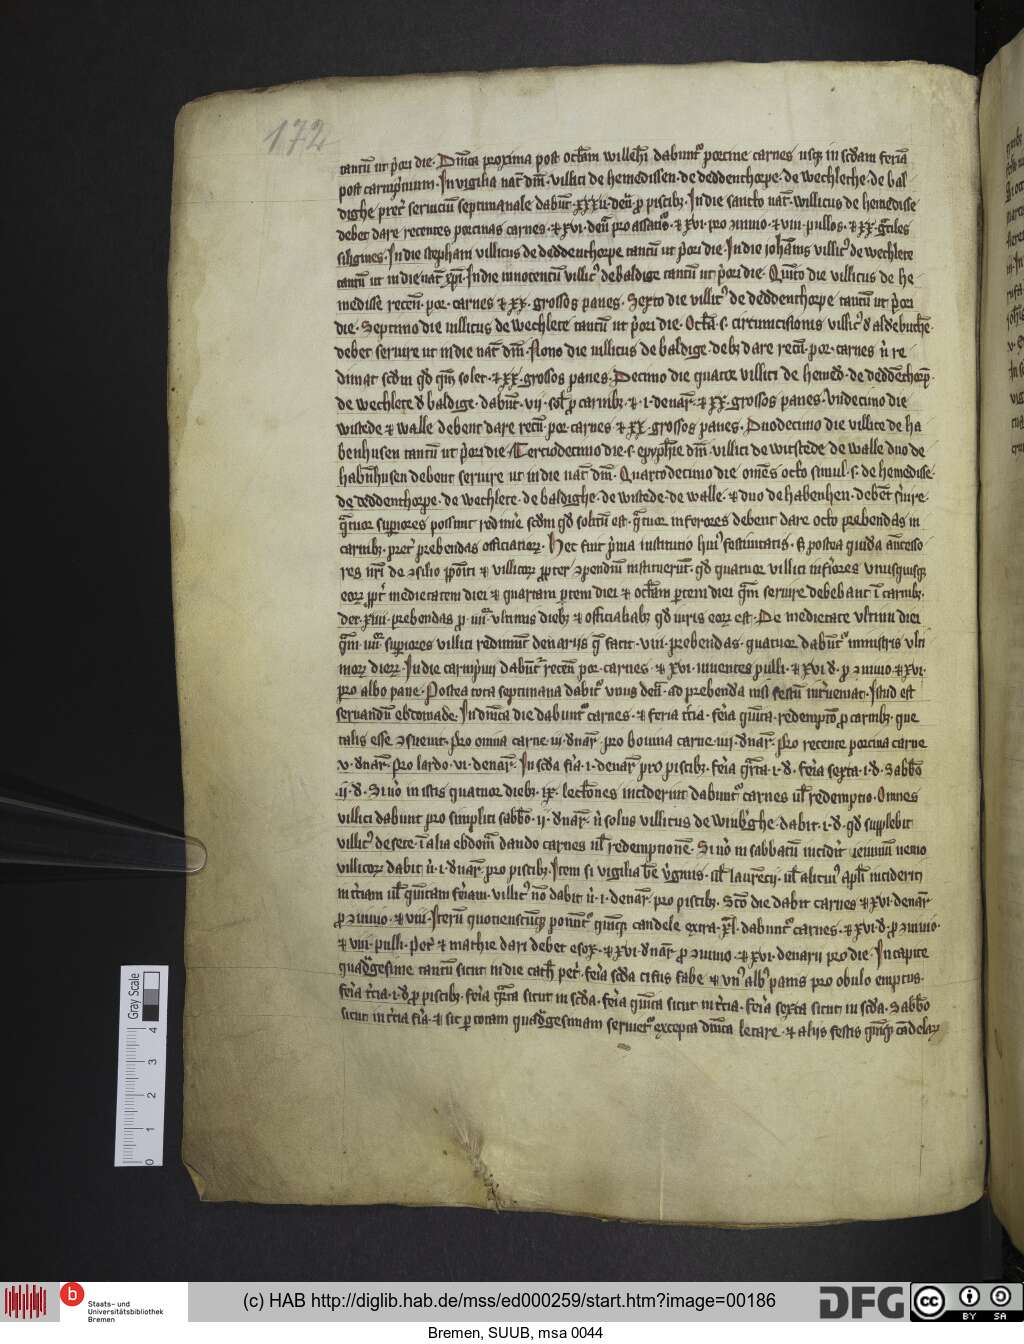 172
tantū ut p̄ori die. Dn̄ica proxima post octām willehī dabunt᷑ porcine carnes usq; in scd̄am feriā
post carnip̄uium. In vigilia nat̄ dn̄i. villici de hemedissen. de deddenthorpe. de wechlethe. de bal
dighe pret̄ seruiciū septimanale dabūt. xxxii. den̄ p̄ piscib;. In die sancto nat̄. willicus de hemedisse
debet dare recentes porcinas carnes. ⁊ xvi. den̄ pro assatio. ⁊ xvi. pro uino. ⁊ viii. pullos. ⁊ xx.
siligines. In die stephani villicus de deddenthorpe tantū ut p̄ori die. In die ioħānis villic᷑ de wechlete
tantū ut in die nat̄ xp̄i. In die innocentū villic᷑ de baldige tantū ut p̄ori die. Quīto die villicus de he
medisse recen̄. por. carnes ⁊ xx. grossos panes. Sexto die villic᷑ de deddenthorpe tantū ut p̄ori
die. Septimo die uillicus de wechlete tantū ut p̄ori die. Octā. s. circumcisionis villic᷑ d aldebuch̄e.
debet seruire ut in die nat̄ dn̄i. Nono die uillicus de baldige. deb; dare recn̄. por. carnes n̄ re
dimat scd̄m qd̄ qn̄q; solet. ⁊ xx. grossos panes. Decimo die quatuor villici de hemed̄. de deddēthorp̄.
de wechlete d baldige. dabūt. vii. sol̄ p̄ carnib;. ⁊. i. denar̄. ⁊ xx. grossos panes. Vndecimo die
wistede ⁊ walle debent dare recn̄ por. carnes ⁊ xx. grossos panes. Duodecimo die villici de ha
benhusen tantū ut p̄ori die. Terciodecimo die. s. epyph̄ie dn̄i. villici de witstede. de walle duo de
habn̄husen debent seruire ut in die nat̄ dn̄i. Quartodecimo die omēs octo simul. s. de hemedisse.
de deddenthorpe. de wechlete. de baldighe. de wistede. de walle. ⁊ duo de habenhen. debēt s̄uire.
q̄tuor sup̄iores possunt redim̄e scd̄m qd̄ solitū est. q̄tuor inferores debent dare octo prebendas in
carnib;. pret̄ p̄rebendas officiatior̄. Hec fuit p̄ma institutio hui᷑ festiuitatis. S; postea quidā an̄cesso
res nr̄i de ꝯsilio ⁊ villicor̄ ꝓpter ꝯpendiū instituerūt. qd̄ quatuor villici inf̄iores vnusquisq;
eor̄ ꝓpt̄ medietatem diei ⁊ quartam p̄tem diei ⁊ octām p̄tem diei seruire debebant ī carnib;.
det. xiiii. prebendas p̄ vltimis dieb; ⁊ officialib; qd̄ iuris eor̄ est. De medietate vltimi diei
qm̄. sup̄iores villici redimūt denariis facit. viii. prebendas. quatuor dabūt᷑ ministris vlti
mor̄ dier̄. In die carnip̄uii dabūt᷑ recen̄ por. carnes. ⁊ xvi. iuuentes pulli. ⁊ xvi d. p̄ uino. ⁊ xvi.
pro albo pane. Postea tota septimana dabit᷑ vnus den̄. ad prebendā nisi festū int̄ueniat. Istud est
seruandū ebdomade. In dn̄ica die dabunt᷑ carnes. ⁊ feria t̄cia. fer̄ia quīta. redemptō p̄ carnib;. que
talis esse ꝯsueuit. Pro omnia carne iii. dnar̄. pro bouina carne iiii. dnar̄. pro recente porcina carne
v. dnar̄. pro lardo. vi. denar̄. In scd̄a fīa. i. denar̄ pro piscib;. fer̄ia q̄rta. i. d. fer̄ia sexta. i. d. Sabb̄o
.ii. d. Si u̇o in istis quatuor dieb;. ix. lectōnes inciderint dabunt᷑ carnes ul̄ redemptio. Omnes
villici dabunt pro simplici sabb̄o. ii. dnar̄. n̄ solus villicus de winb̄ghe. dabit. i. d. qd̄ supplebit
villic᷑ de sete. ī alia ebdom̄ dando carnes ul̄ redemptionē. Si u̇o in sabbatū incidit̄ ieiuniū nemo
villicor̄ dabit n̄. i. dnar̄. pro piscib;. Item si vigilia b̄e v̄ginis. ul̄ laurēcij. ul̄ alicui᷑ apl̄i inciderit
in t̄ciam ul̄ quītam fer̄iam. villic᷑ nō dabit n̄. i. denar̄. pro piscib;. Scō die dabit carnes ⁊ xvi. denar̄
p̄ uino. ⁊ viii. Iterū quotienscūq; ponūt᷑ quīq; candele extra. dabunt᷑ carnes. ⁊ xvi. d. p̄ uino.
⁊ viii. pulli. Pet̄ ⁊ mathie dari debet esox. ⁊ xvi. dnar̄. p̄ uino. ⁊ xvi. denarii pro die. In capite
quad̄gesime tantū sicut in die cath̄. pet̄. fer̄ia scd̄a cifus fabe ⁊ vn᷑ alb᷑ panis pro obulo emptus.
fer̄ia t̄cia. i. d. p̄ piscib;. fer̄ia q̄rta sicut in scd̄a. fer̄ia quīta sicut in t̄cia. fer̄ia sexta sicut in scd̄a. Sabb̄o
sicut in t̄cia fīa. ⁊ sic p̄ totam quad̄gesimam seruiet᷑ excepta dn̄ica letare. ⁊ aliis festis quīq; cādelar̄
Gray Scale
0 1 2 3 4
b Staats- und
Universitätsbibliothek
Bremen
(c) HAB http://diglib.hab.de/mss/ed000259/start.htm?image=00186
DFG
cc BY SA
Bremen, SUUB, msa 0044